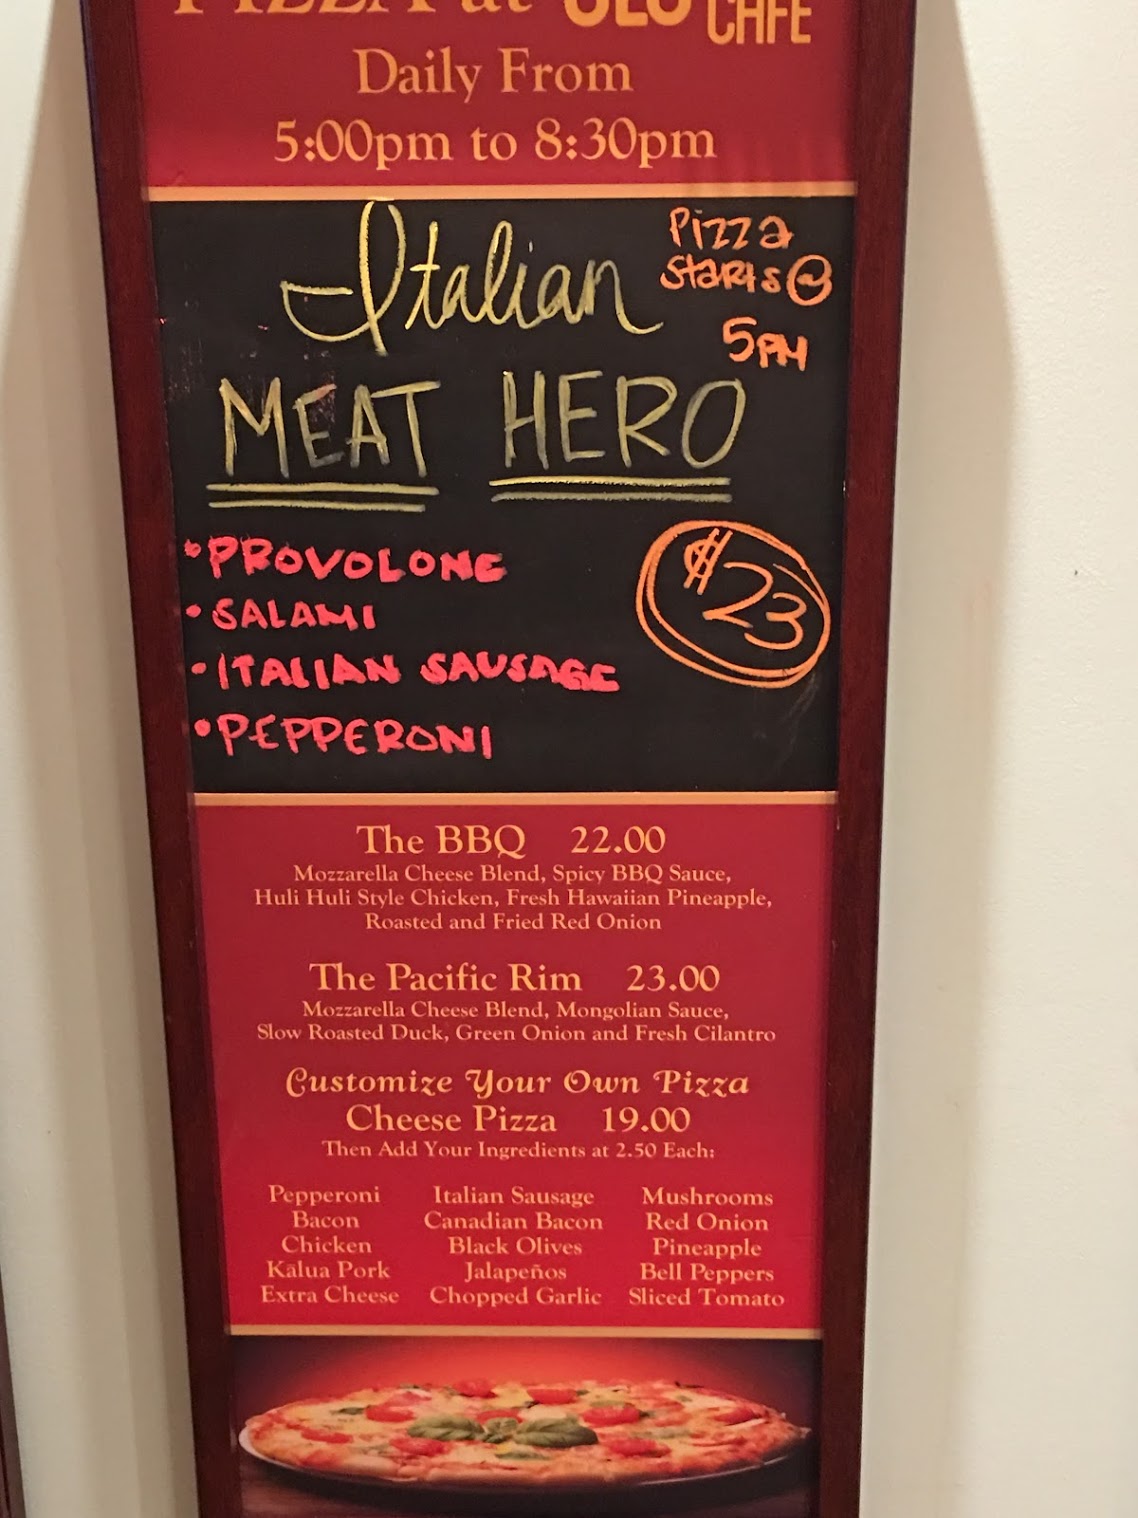 PIZZA at
CAFE
Daily From
5:00pm to 8:30pm
Italian
Pizza
Starts @
5PM
MEAT HERO
• PROVOLONE
• SALAMI
• ITALIAN SAUSAGE
• PEPPERONI
$23
The BBQ 22.00
Mozzarella Cheese Blend, Spicy BBQ Sauce,
Huli Huli Style Chicken, Fresh Hawaiian Pineapple,
Roasted and Fried Red Onion
The Pacific Rim 23.00
Mozzarella Cheese Blend, Mongolian Sauce,
Slow Roasted Duck, Green Onion and Fresh Cilantro
Customize Your Own Pizza
Cheese Pizza 19.00
Then Add Your Ingredients at 2.50 Each:
Pepperoni Italian Sausage Mushrooms
Bacon Canadian Bacon Red Onion
Chicken Black Olives Pineapple
Kālua Pork Jalapeños Bell Peppers
Extra Cheese Chopped Garlic Sliced Tomato